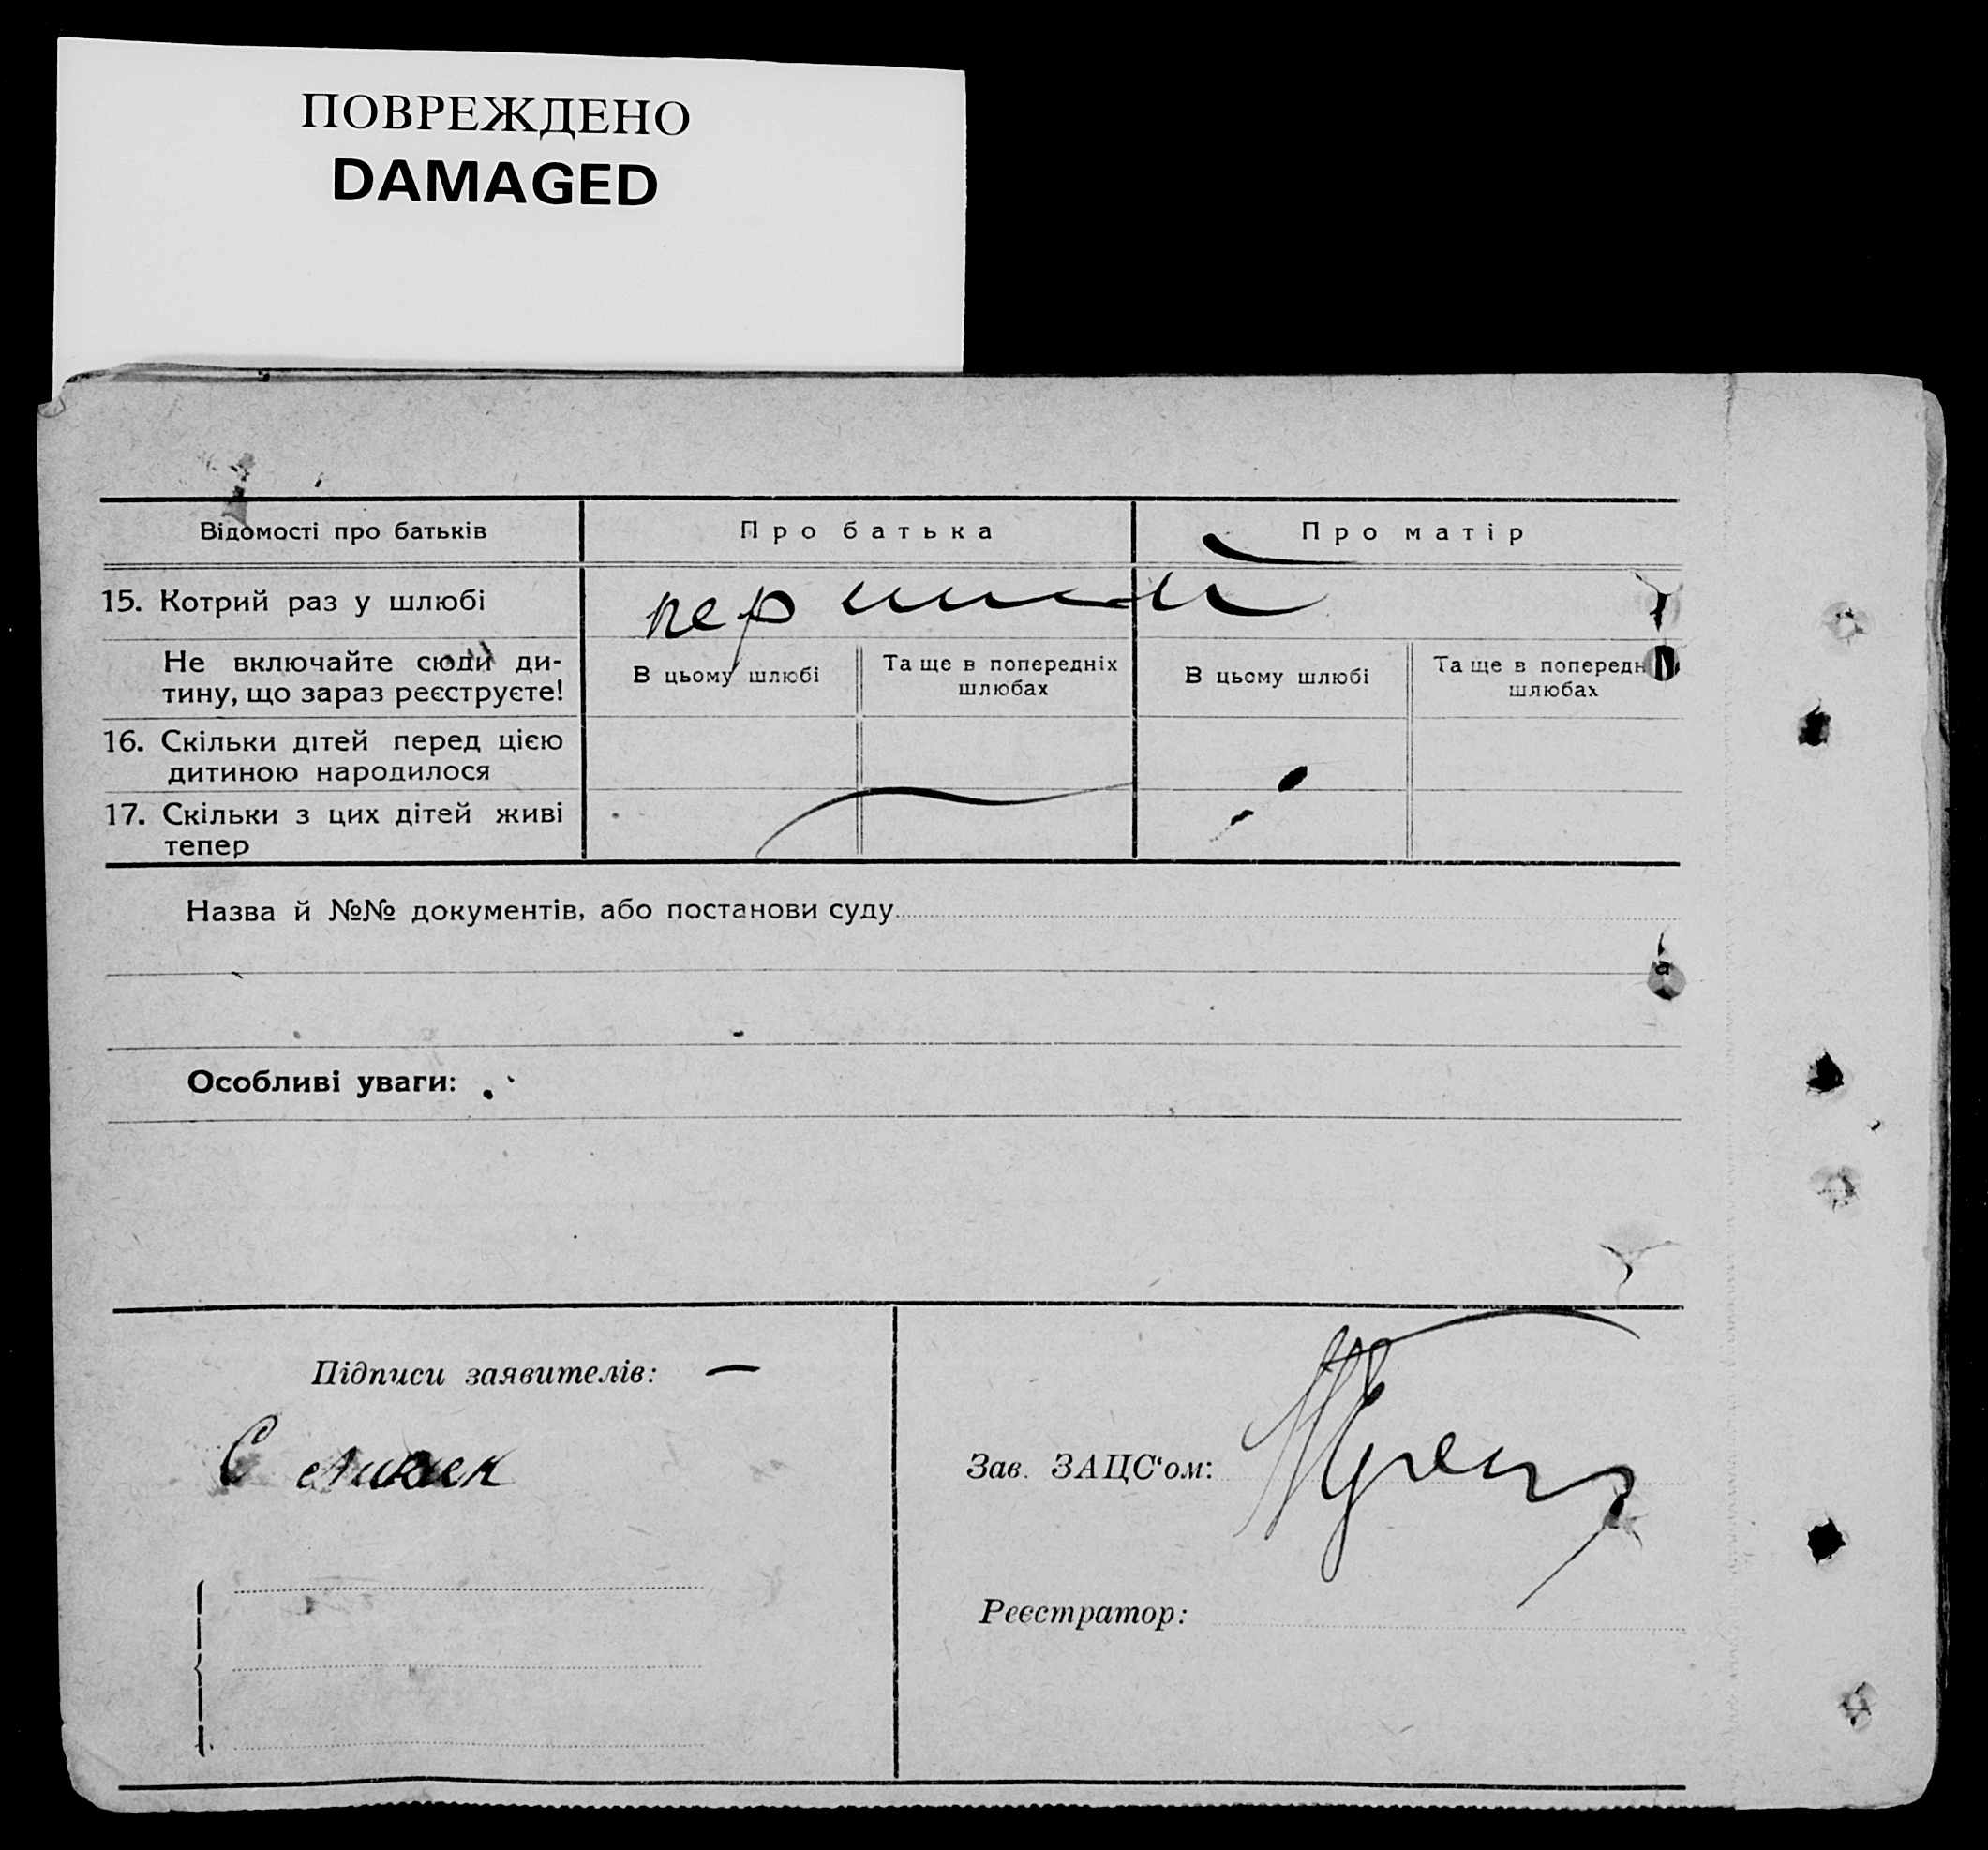 ПОВРЕЖДЕНО
DAMAGED
Відомості про батьків
Про батька
Про матір
15. Котрий раз у шлюбі
перший
Не включайте сюди ди-
тину, що зараз реєструєте!
В цьому шлюбі
Та ще в попередніх
шлюбах
В цьому шлюбі
Та ще в попередн
шлюбах
16. Скільки дітей перед цією
дитиною народилося
17. Скільки з цих дітей живі
тепер
Назва й №№ документів, або постанови суду
Особливі уваги:
Підписи заявителів: —
Зав. ЗАЦС‘ом:
Реєстратор: